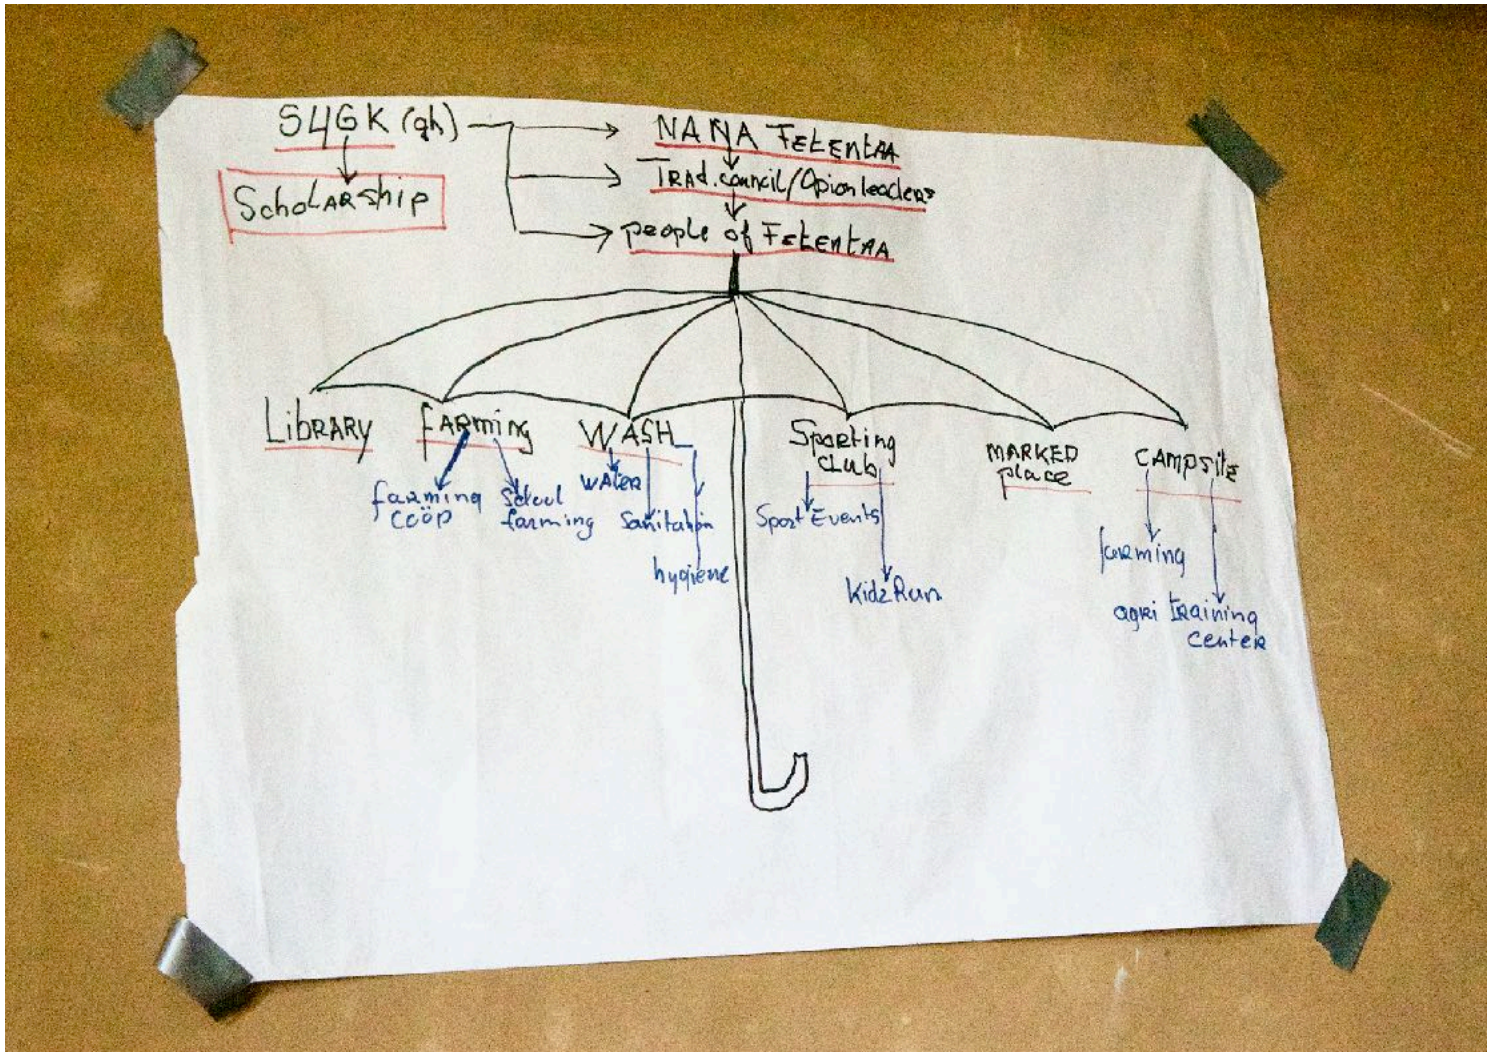 S4GK (gh)
Scholarship
NANA Fetentaa
Trad. council/Opion leaders
people of Fetentaa
Library
farming
farming
coöp
School
farming
WASH
water
Sanitation
hygiene
Sporting
club
Sport Events
Kidz Run
MARKED
place
CAMPSitE
farming
agri training
center